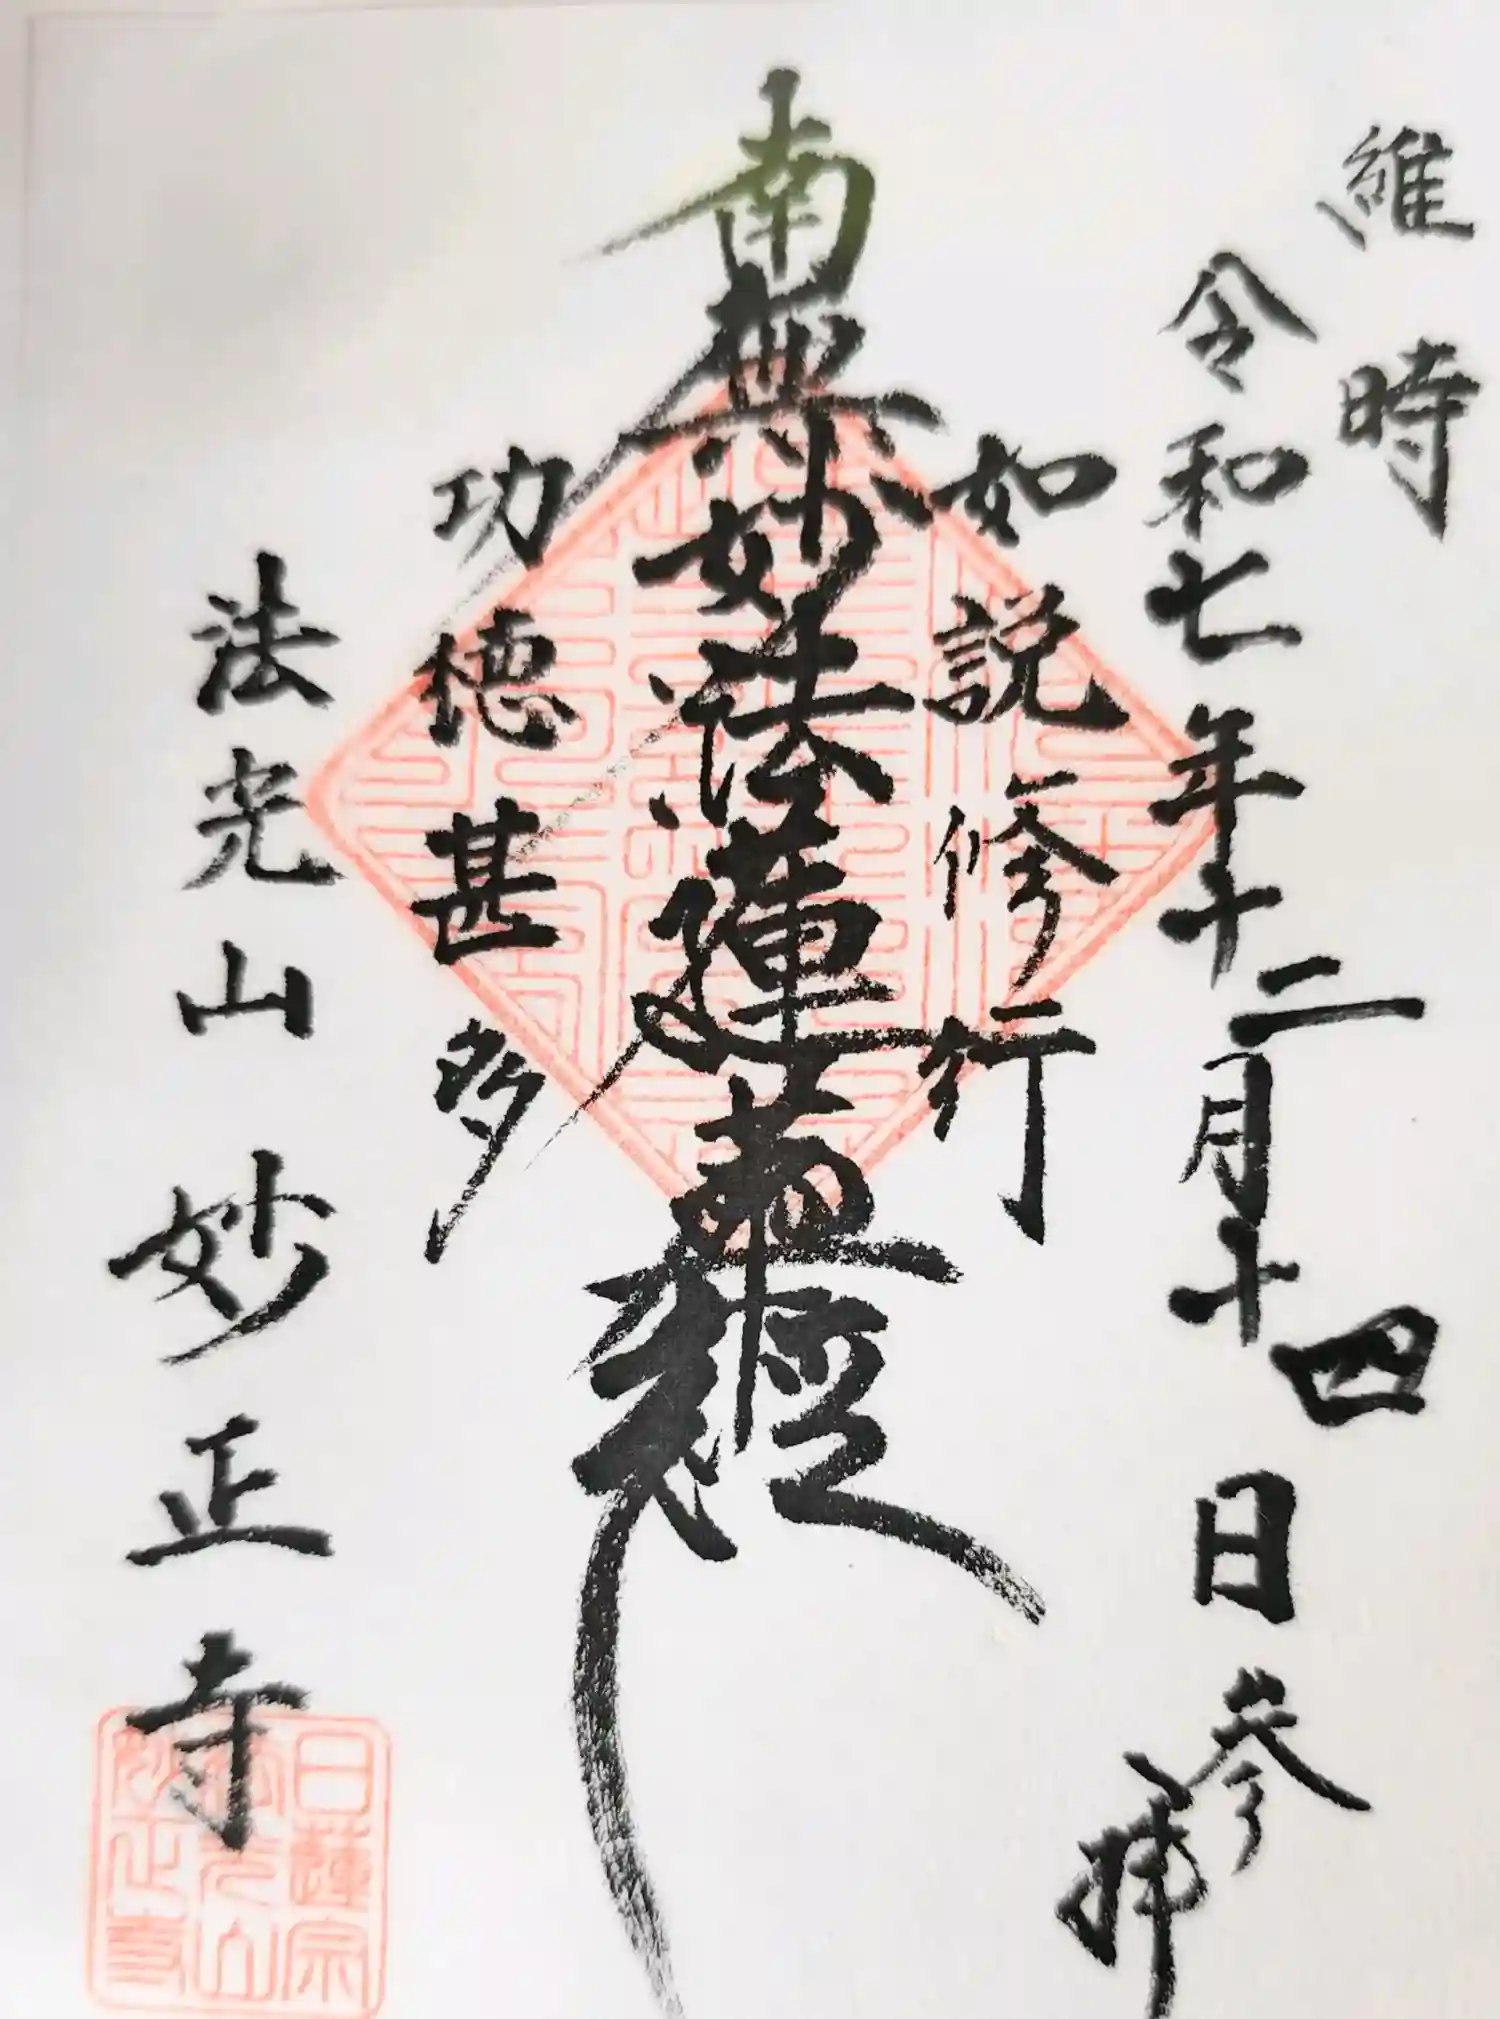 維時
令和七年十二月十四日参拝
如説修行
南無妙法蓮華経
功徳甚多
法光山 妙正寺
日蓮宗
法光山
妙正寺